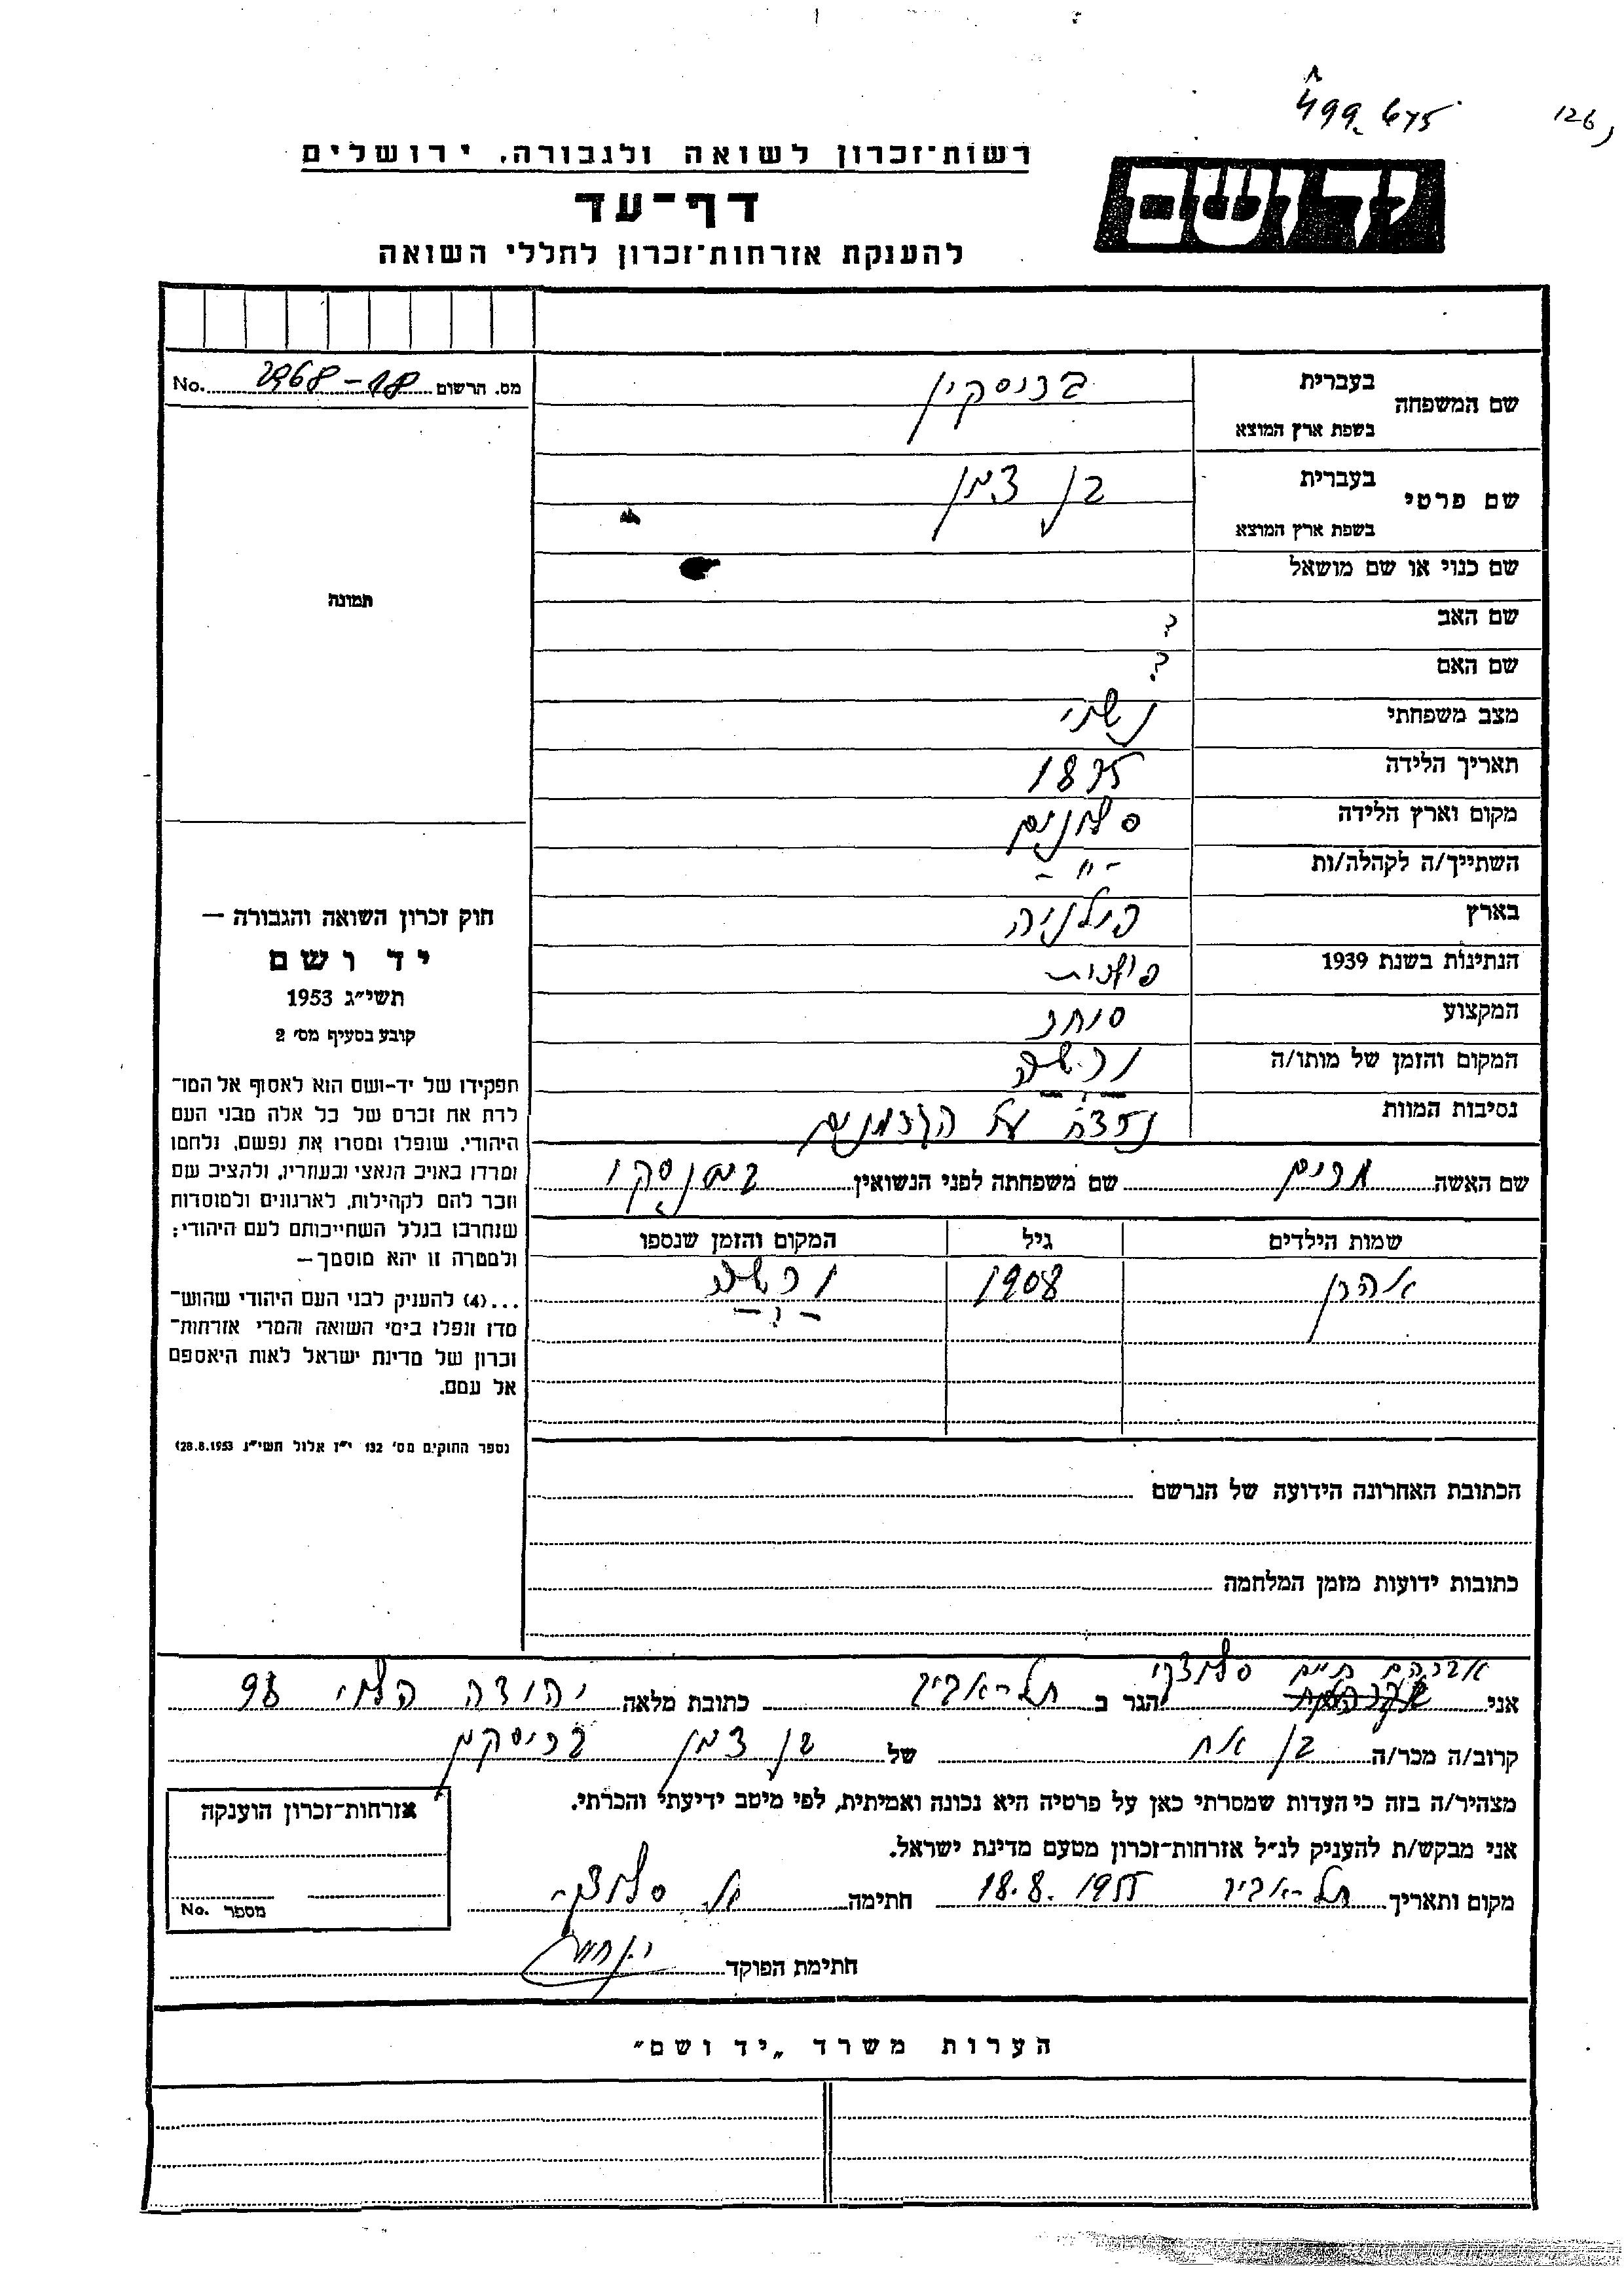 499.675
126
רשות-זכרון לשואה ולגבורה, ירושלים
ידושם
דף-עד
להענקת אזרחות-זכרון לחללי השואה
מס. הרשום 2968-18 No.
שם המשפחה
בעברית
בשפת ארץ המוצא
ברנסקין
שם פרטי
בעברית בן ציון
בשפת ארץ המוצא
תמונה
שם כנוי או שם מושאל
שם האב ?
שם האם ?
מצב משפחתי נשוי
תאריך הלידה 1875
מקום וארץ הלידה סלונים
השתייך/ה לקהלה/ות -"-
בארץ פולניה
הנתינות בשנת 1939 פולנית
המקצוע סוחר
המקום והזמן של מותו/ה ורשה - ? -
נסיבות המוות נרצח על הגרמנים
שם האשה מרים שם משפחתה לפני הנשואין
שמות הילדים גיל המקום והזמן שנספו
אהרן 1908 ורשה
- ? -
חוק זכרון השואה והגבורה —
יד ושם
תשי״ג 1953
קובע בסעיף מס׳ 2
תפקידו של יד-ושם הוא לאסוף אל המו־
לדת את זכרם של כל אלה מבני העם
היהודי, שנפלו ומסרו את נפשם, נלחמו
ומרדו באויב הנאצי ובעוזריו, ולהציב שם
וזכר להם לקהילות, לארגונים ולמוסדות
שנחרבו בגלל השתייכותם לעם היהודי;
ולמטרה זו יהא מוסמך—
...(4) להעניק לבני העם היהודי שהוש־
מדו ונפלו בימי השואה והמרי אזרחות־
זכרון של מדינת ישראל לאות היאספם
אל עמם.
(ספר החוקים מס׳ 132 י״ז אלול תשי״ג 28.8.1953)
הכתובת האחרונה הידועה של הנרשם
כתובות ידועות מזמן המלחמה
אברהם חיים סלוצקי
אני הגר ב תל-אביב כתובת מלאה יהודה הלוי 98
קרוב/ה מכר/ה בן אח של בן ציון
מצהיר/ה בזה כי העדות שמסרתי כאן על פרטיה היא נכונה ואמיתית, לפי מיטב ידיעתי והכרתי.
אני מבקש/ת להעניק לנ״ל אזרחות-זכרון מטעם מדינת ישראל.
מקום ותאריך תל-אביב 18.8.1955 חתימה סלוצקי
אזרחות-זכרון הוענקה
מספר No.
חתימת הפוקד
הערות משרד „יד ושם״